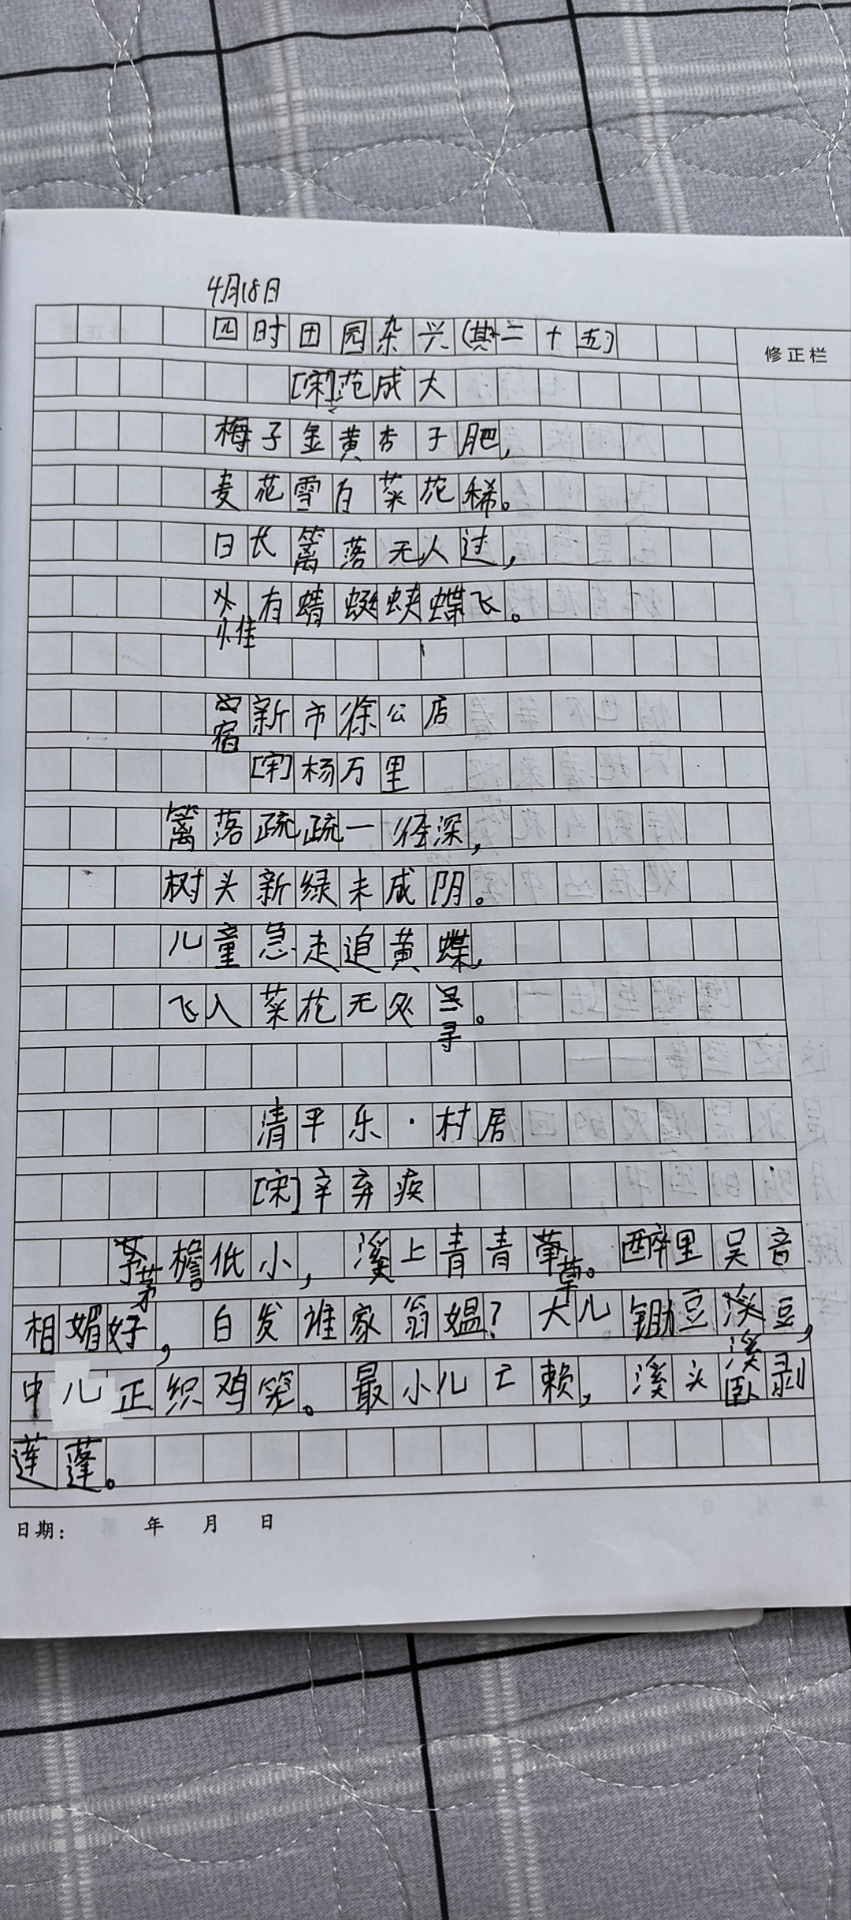 4月18日
四时田园杂兴(其二十五)
修正栏
[宋]范成大
梅子金黄杏子肥,
麦花雪白菜花稀。
日长篱落无人过,
有蜻蜓蛱蝶飞。
惟
新市徐公店
宿
[宋]杨万里
篱落疏疏一径深,
树头新绿未成阴。
儿童急走追黄蝶,
飞入菜花无处。
寻
清平乐·村居
[宋]辛弃疾
檐低小,溪上青青。醉里吴音
茅 草
相媚好,白发谁家翁媪?大儿锄豆溪豆,
溪
中儿正织鸡笼。最小儿亡赖,溪头卧剥
莲蓬。
日期: 年 月 日